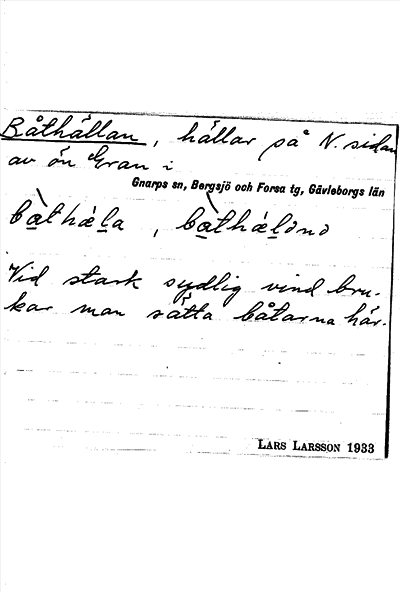 Båthällan, hällar på N. sidan
av ön Gran i
Gnarps sn, Bergsjö och Forsa tg, Gävleborgs län
Vid stark sydlig vind bru-
kar man sätta båtarna här.
LARS LARSSON 1933